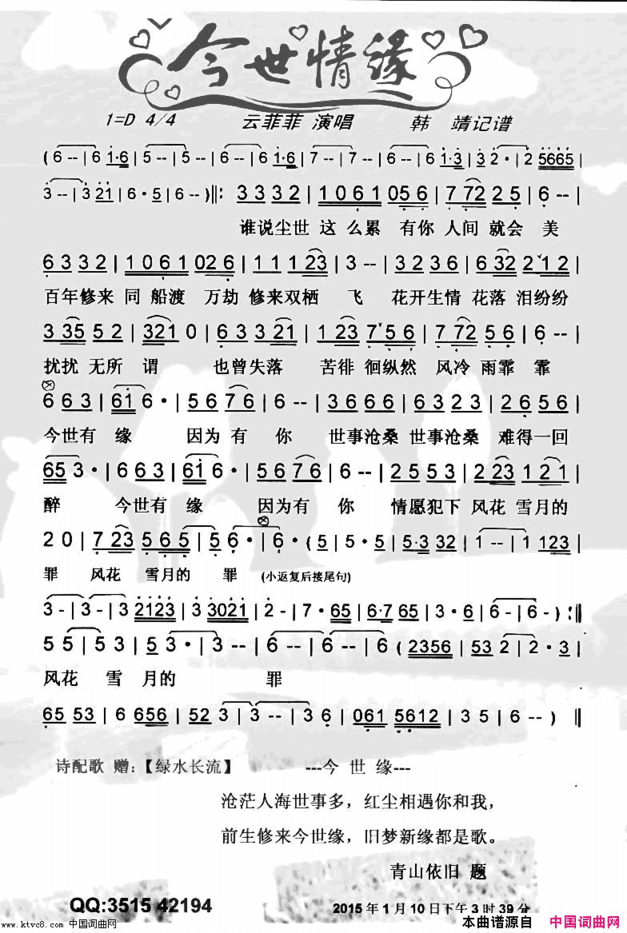 今世情缘
1=D 4/4 云菲菲 演唱 韩 靖记谱
( 6 -- | 6 1·6 | 5 -- | 5 -- | 6 -- | 6 1·6 | 7 -- | 7 -- | 6 -- | 6 1·3 | 3 2· | 2 5665 |
3 -- | 3 21 | 6 · 5 | 6 -- ) ‖: 3 3 3 2 | 1 0 6 1 056 | 7 72 2 5 | 6 -- |
谁说尘世 这 么累 有你 人间 就会 美
6 3 3 2 | 1 0 6 1 026 | 1 1 1 23 | 3 -- | 3 2 3 6 | 6 32 2 1 2 |
百年修来 同 船渡 万劫 修来双栖 飞 花开生情 花落 泪纷纷
3 35 5 2 | 321 0 | 0 5 6 | 6 3 3 21 | 1 23 7 5 6 | 7 72 5 6 |
扰扰 无所 谓 也曾失落 苦徘 徊纵然 风冷 雨霏 霏
6 6 3 | 61 6 · | 5 67 6 | 6 -- | 3 5 6 5 | 6 3 2 3 | 2 6 5 6 |
今世有 缘 因为 有 你 世事沧桑 世事沧桑 难得一回
65 3 · | 6 6 3 | 61 6 · | 5 67 6 | 6 -- | 2 5 5 3 | 2 23 1 2 1 |
醉 今世有 缘 因为有 你 情愿犯下 风花 雪月的
2 0 | 7 23 5 6 5 | 5 6 · | 6 · | ( 5 · | 5 · | 5·3 03 32 | 1 -- | 1 123 |
罪 风花 雪月的 罪 (小返复后接尾句)
3 - | 3 - | 2123 | 3021 | 2 - | 7 · 65 | 6·7 65 | 3 · 6 | 6 - | 6 - ) :‖
5 5 | 5 3 | 5 3 · | 3 -- | 3 -- | 6 -- | 6 -- ( 2356 | 53 2 | 2 · 3 |
风花 雪 月的 罪
65 53 | 6 656 | 5 32 | 3 | 3 -- | 3 6 | · 061 5612 | 3 5 | 6 -- ) ‖
诗配歌 赠：【绿水长流】 ---今 世 缘---
沧茫人海世事多，红尘相遇你和我，
前生修来今世缘，旧梦新缘都是歌。
青山依旧 题
QQ:3515 42194 2015 年 1 月 10 日下午 3 时 39 分
www.ktvc8.com 中国词曲网 本曲谱源自 中国词曲网